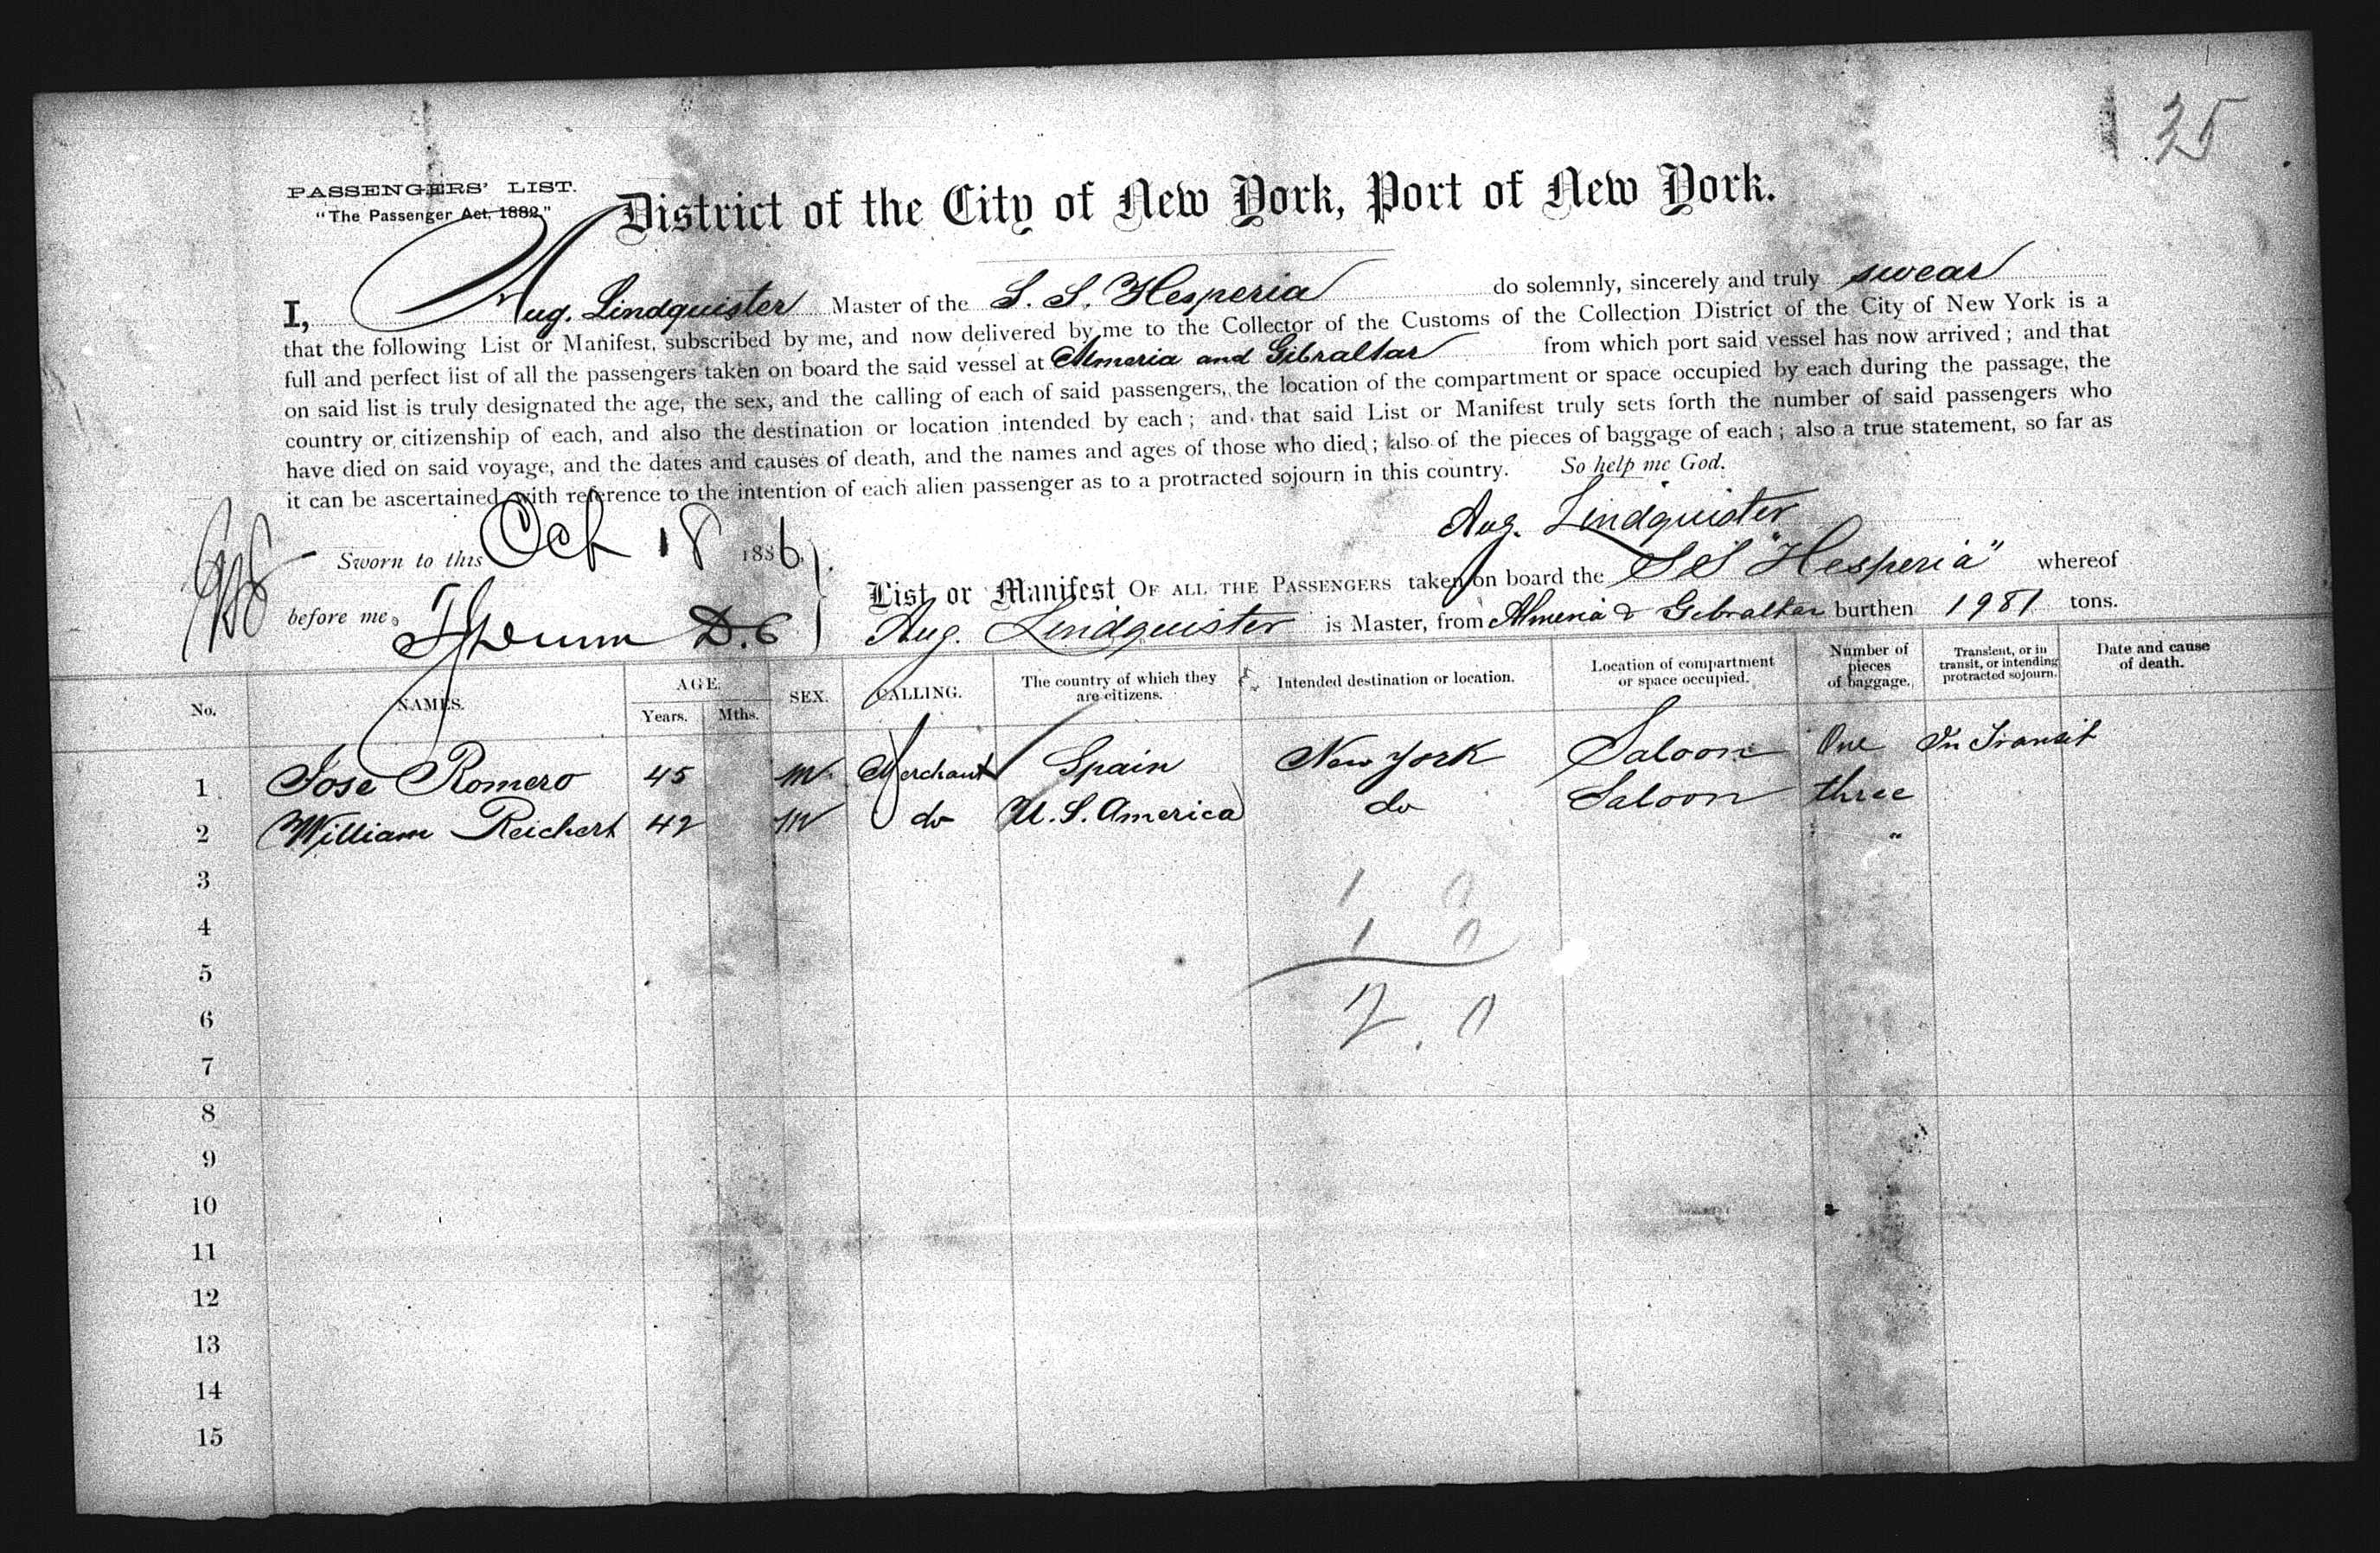 35
PASSENGERS' LIST.
"The Passenger Act, 1882."
District of the City of New York, Port of New York.
I, Aug. Lindquister Master of the S. S. Hesperia do solemnly, sincerely and truly swear
that the following List or Manifest, subscribed by me, and now delivered by me to the Collector of the Customs of the Collection District of the City of New York is a
full and perfect list of all the passengers taken on board the said vessel at Almeria and Gibraltar from which port said vessel has now arrived; and that
on said list is truly designated the age, the sex, and the calling of each of said passengers, the location of the compartment or space occupied by each during the passage, the
country or citizenship of each, and also the destination or location intended by each; and that said List or Manifest truly sets forth the number of said passengers who
have died on said voyage, and the dates and causes of death, and the names and ages of those who died; also of the pieces of baggage of each; also a true statement, so far as
it can be ascertained with reference to the intention of each alien passenger as to a protracted sojourn in this country. So help me God.
Aug. Lindquister
Sworn to this Oct 18 1886
before me, D.C.
List or Manifest OF ALL THE PASSENGERS taken on board the SS "Hesperia" whereof
Aug. Lindquister is Master, from Almeria & Gibraltar burthen 1981 tons.
No. NAMES. AGE. Years. Mths. SEX. CALLING. The country of which they are citizens. Intended destination or location. Location of compartment or space occupied. Number of pieces of baggage. Transient, or in transit, or intending protracted sojourn. Date and cause of death.
1 Jose Romero 45 M Merchant Spain New York Saloon One In Transit
2 William Reichert 42 M do U. S. America do Saloon three "
3
4
5
6
7
8
9
10
11
12
13
14
15
1 0
1 0
2 . 0